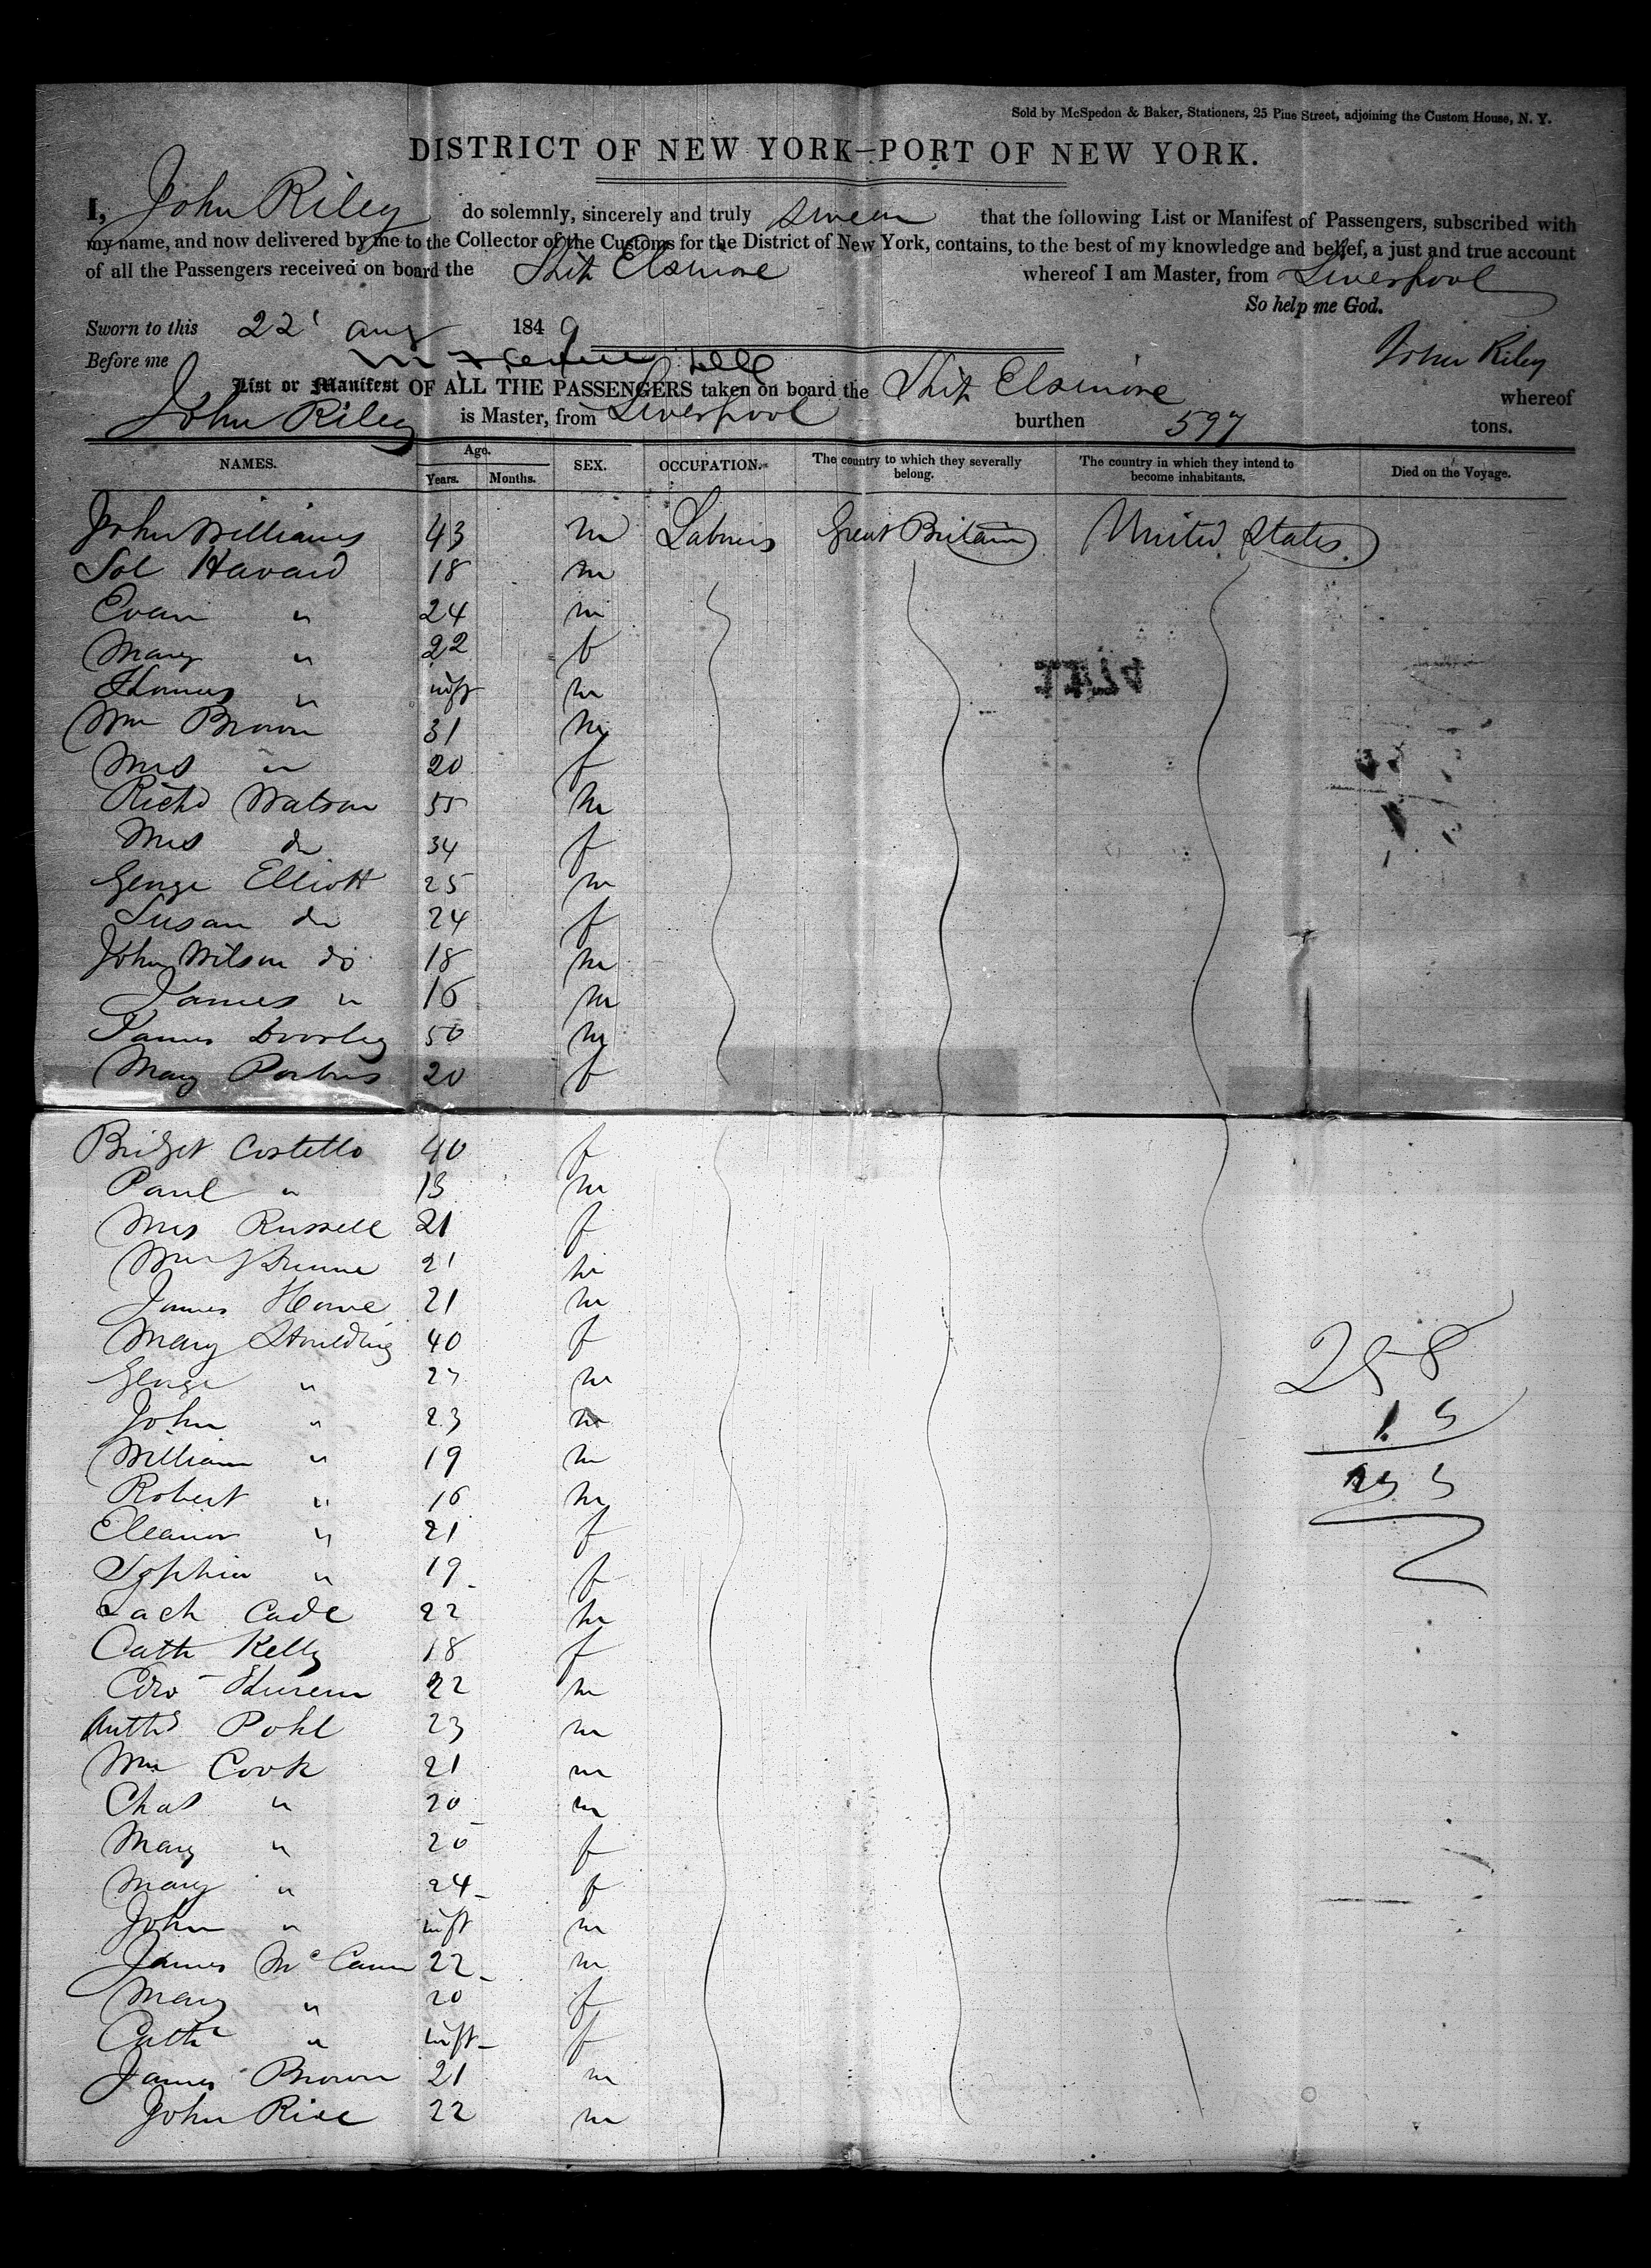 Sold by McSpedon & Baker, Stationers, 25 Pine Street, adjoining the Custom House, N. Y.
DISTRICT OF NEW YORK—PORT OF NEW YORK.
I, John Riley do solemnly, sincerely and truly swear that the following List or Manifest of Passengers, subscribed with
my name, and now delivered by me to the Collector of the Customs for the District of New York, contains, to the best of my knowledge and belief, a just and true account
of all the Passengers received on board the Ship Elsinore whereof I am Master, from Liverpool
So help me God.
Sworn to this 22' Aug 1849
John Riley
Before me
List or Manifest OF ALL THE PASSENGERS taken on board the Ship Elsinore whereof
John Riley is Master, from Liverpool burthen 597 tons.
NAMES. Age. Years. Months. SEX. OCCUPATION. The country to which they severally belong. The country in which they intend to become inhabitants. Died on the Voyage.
John Williams 43 m Laborers Great Britain United States
Sol Havard 18 m
Evan " 24 m
Mary " 22 f
Thomas " inft m
Wm Brown 31 m
Mrs " 20 f
Richd Watson 55 m
Mrs do 34 f
George Elliott 25 m
Susan do 24 f
John Wilson do 18 m
James " 16 m
James 50 m
Mary 20 f
Bridget Costello 40 f
Paul " 13 m
Mrs Russell 21 f
Wm 21 m
James Howe 21 m
Mary 40 f
George " 27 m
John " 23 m
William " 19 m
Robert " 16 m
Eleanor " 21 f
Sophia " 19 f
Zach Cade 22 m
Cath Kelly 18 f
22 m
Pohl 23 m
Wm Cook 21 m
Chas " 20 m
Mary " 20 f
Mary " 24 f
John " inft m
James McCann 22 m
Mary " 20 f
Cathe " inft f
James Brown 21 m
John Rice 22 m
258